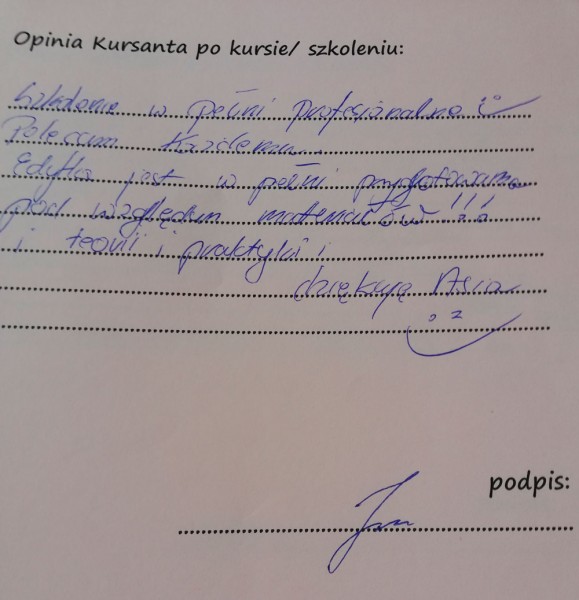 Opinia Kursanta po kursie/ szkoleniu:
Szkolenie w pełni profesjonalne
Polecam każdemu.
Edytka jest w pełni przygotowana
pod względem materiałów !!!
i teorii i praktyki i
dziękuję Asia
podpis: